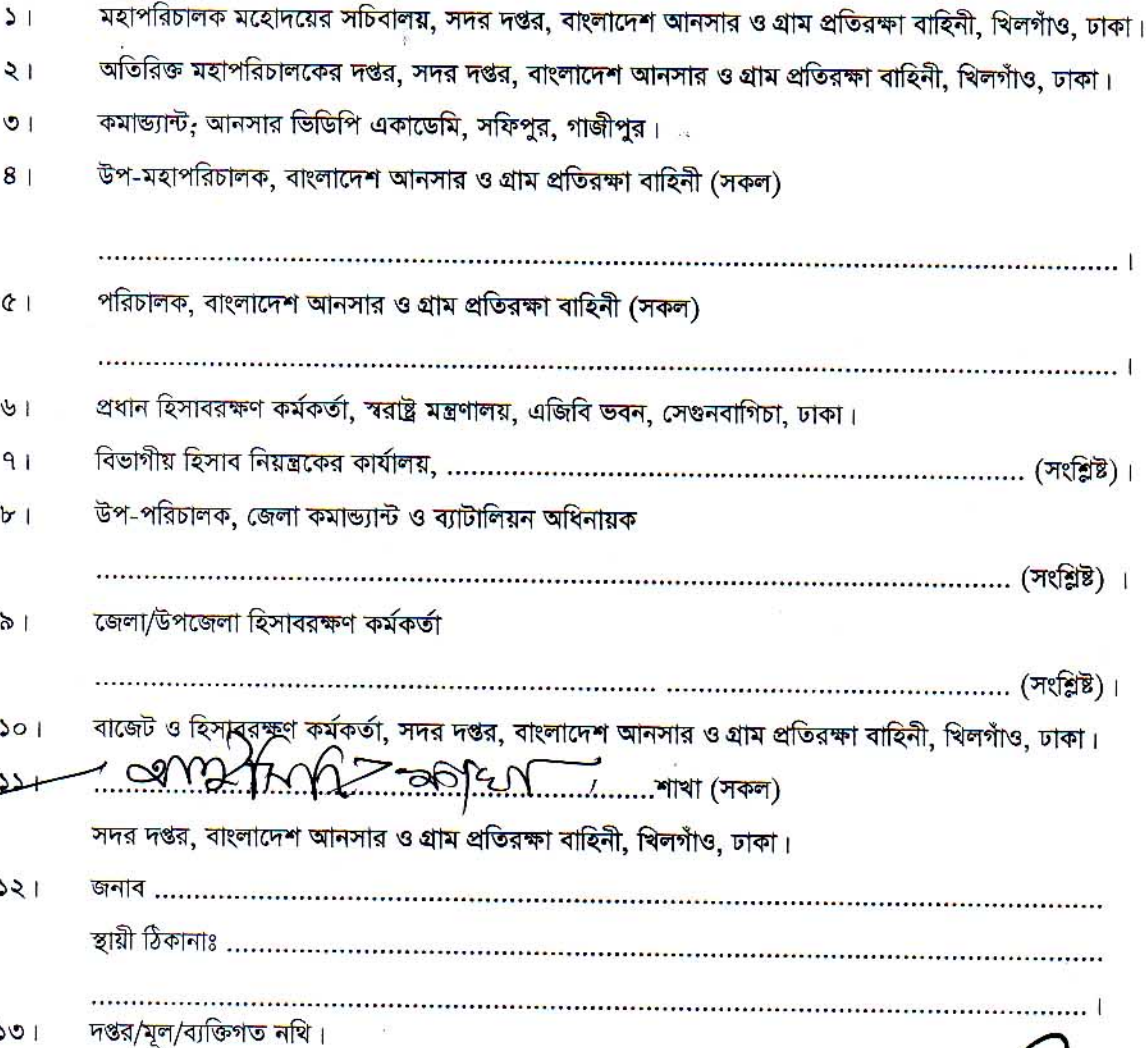 ১। মহাপরিচালক মহোদয়ের সচিবালয়, সদর দপ্তর, বাংলাদেশ আনসার ও গ্রাম প্রতিরক্ষা বাহিনী, খিলগাঁও, ঢাকা।
২। অতিরিক্ত মহাপরিচালকের দপ্তর, সদর দপ্তর, বাংলাদেশ আনসার ও গ্রাম প্রতিরক্ষা বাহিনী, খিলগাঁও, ঢাকা।
৩। কমান্ড্যান্ট; আনসার ভিডিপি একাডেমি, সফিপুর, গাজীপুর।
৪। উপ-মহাপরিচালক, বাংলাদেশ আনসার ও গ্রাম প্রতিরক্ষা বাহিনী (সকল)
.......................................................................................................................।
৫। পরিচালক, বাংলাদেশ আনসার ও গ্রাম প্রতিরক্ষা বাহিনী (সকল)
.......................................................................................................................।
৬। প্রধান হিসাবরক্ষণ কর্মকর্তা, স্বরাষ্ট্র মন্ত্রণালয়, এজিবি ভবন, সেগুনবাগিচা, ঢাকা।
৭। বিভাগীয় হিসাব নিয়ন্ত্রকের কার্যালয়, ..................................................................... (সংশ্লিষ্ট)।
৮। উপ-পরিচালক, জেলা কমান্ড্যান্ট ও ব্যাটালিয়ন অধিনায়ক
........................................................................................................... (সংশ্লিষ্ট) ।
৯। জেলা/উপজেলা হিসাবরক্ষণ কর্মকর্তা
.................................................................. ........................................ (সংশ্লিষ্ট)।
১০। বাজেট ও হিসাবরক্ষণ কর্মকর্তা, সদর দপ্তর, বাংলাদেশ আনসার ও গ্রাম প্রতিরক্ষা বাহিনী, খিলগাঁও, ঢাকা।
১১। .................................................................শাখা (সকল)
সদর দপ্তর, বাংলাদেশ আনসার ও গ্রাম প্রতিরক্ষা বাহিনী, খিলগাঁও, ঢাকা।
১২। জনাব .............................................................................................................
স্থায়ী ঠিকানাঃ .....................................................................................................
.....................................................................................................................।
১৩। দপ্তর/মূল/ব্যক্তিগত নথি।